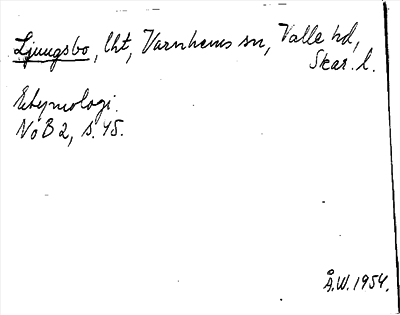 Ljungsbo, lht, Varnhems sn, Valle hd,
Skar. l.
Etymologi.
NoB 2, s. 45.
Å.W. 1954.